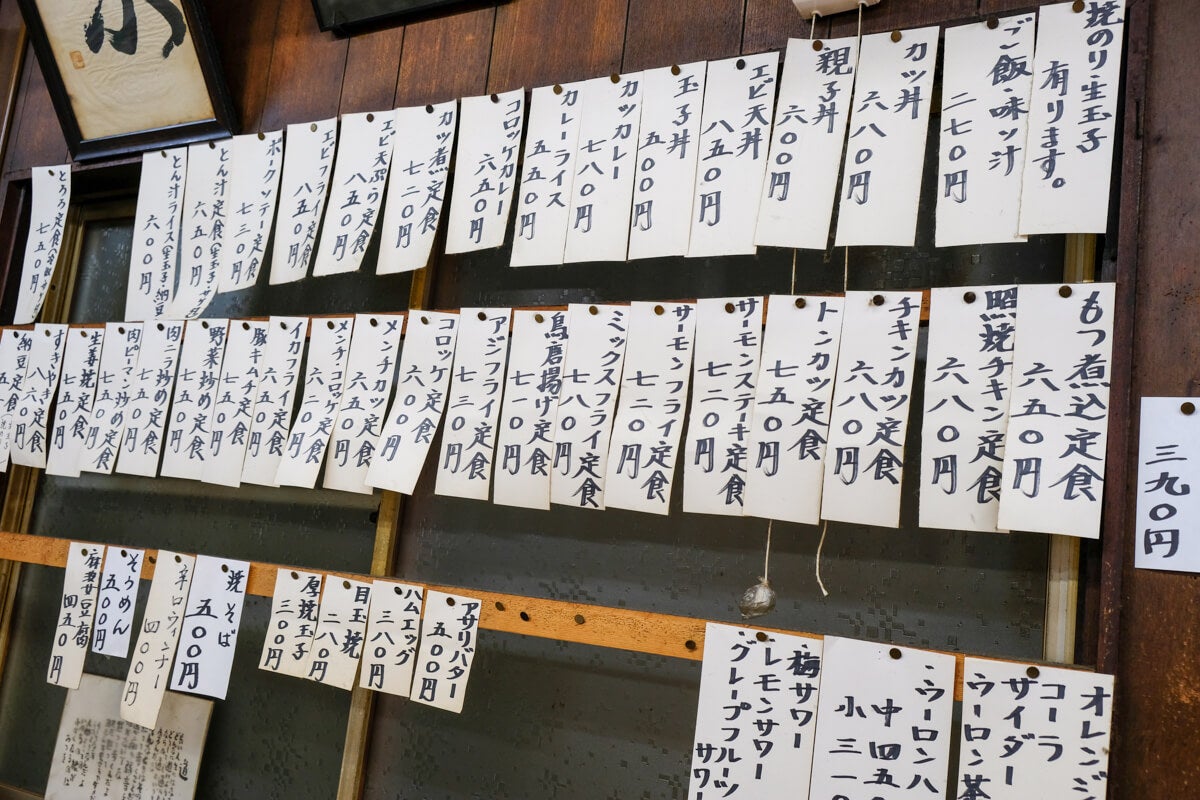 焼のり・生玉子
有ります。
ご飯・味ソ汁
二七〇円
カツ丼
六八〇円
親子丼
六〇〇円
エビ天丼
八五〇円
玉子丼
五〇〇円
カツカレー
七八〇円
カレーライス
五五〇円
コロッケカレー
六五〇円
カツ煮定食
七二〇円
エビ天ぷら定食
八五〇円
エビフライ定食
八五〇円
ポークソテー定食
七三〇円
とん汁定食(生玉子・サ
六五〇円
とん汁ライス(生玉子・納豆
六〇〇円
とろろ定食
七五〇円
もつ煮込定食
六五〇円
照焼チキン定食
六八〇円
チキンカツ定食
六八〇円
トンカツ定食
七五〇円
サーモンステキ定食
七二〇円
サーモンフライ定食
七二〇円
ミックスフライ定食
七八〇円
鳥唐揚げ定食
七一〇円
アジフライ定食
七三〇円
コロッケ定食
六〇〇円
メンチカツ定食
六五〇円
メンチ・コロッケ定食
六二〇円
イカフライ定食
六五〇円
豚キムチ定食
七五〇円
野菜炒め定食
七五〇円
肉ニラ炒め定食
七五〇円
肉ピーマン炒め定食
七五〇円
生姜焼定食
七五〇円
すきやき定食
八八〇円
納豆定食
三九〇円
アサリバター
五〇〇円
ハムエッグ
三八〇円
目玉焼
二八〇円
厚焼玉子
三〇〇円
焼そば
五〇〇円
辛口ウィンナー
四〇〇円
そうめん
五〇〇円
麻婆豆腐
四五〇円
オレンジ
コーラ
サイダー
ウーロン茶
・ウーロンハ
中四五
小三一
・梅サワー
・レモンサワー
・グレープフルーツ
サワ